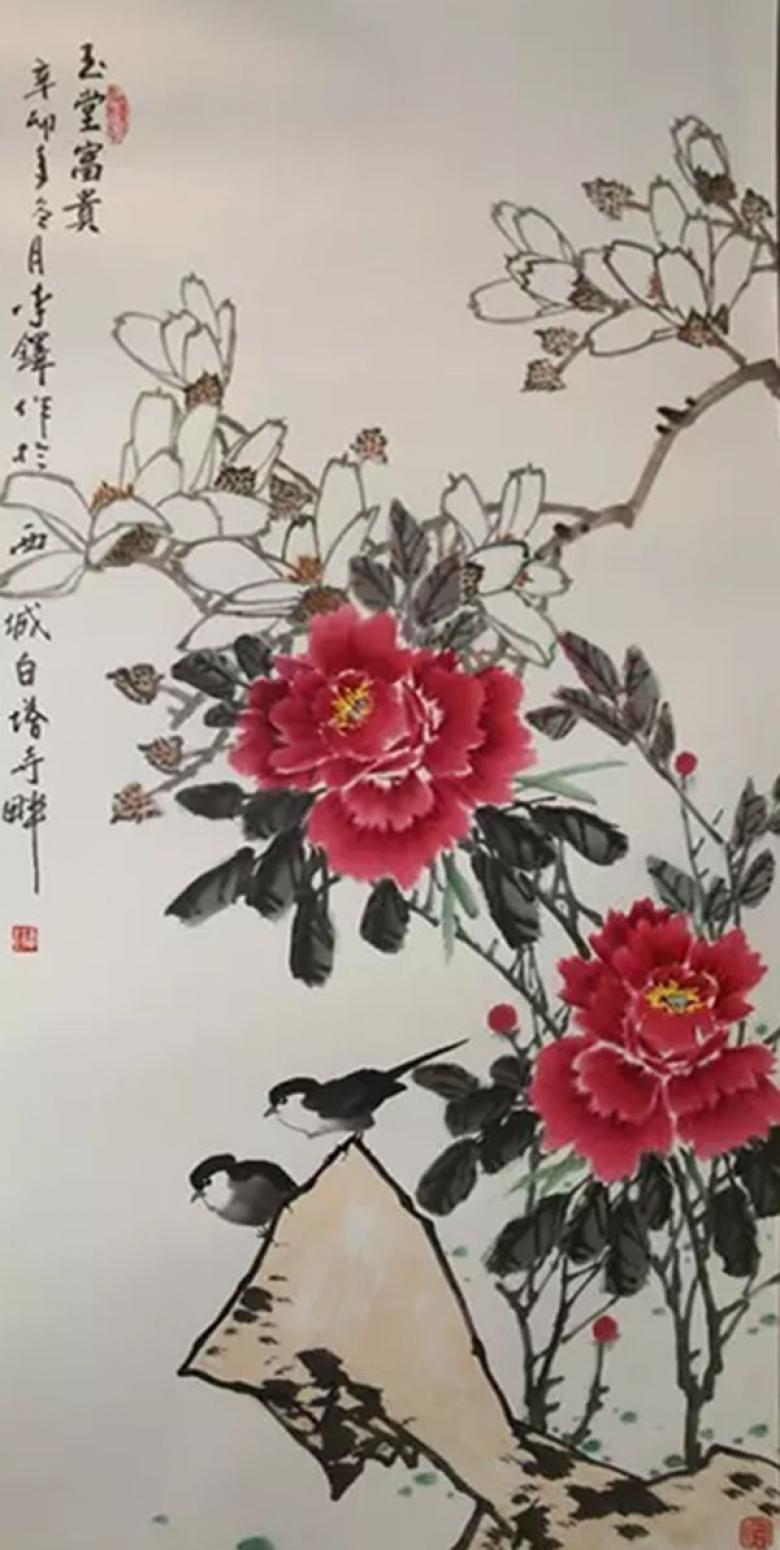 玉堂富貴
辛卯年冬月李鐸作於西城白塔寺畔